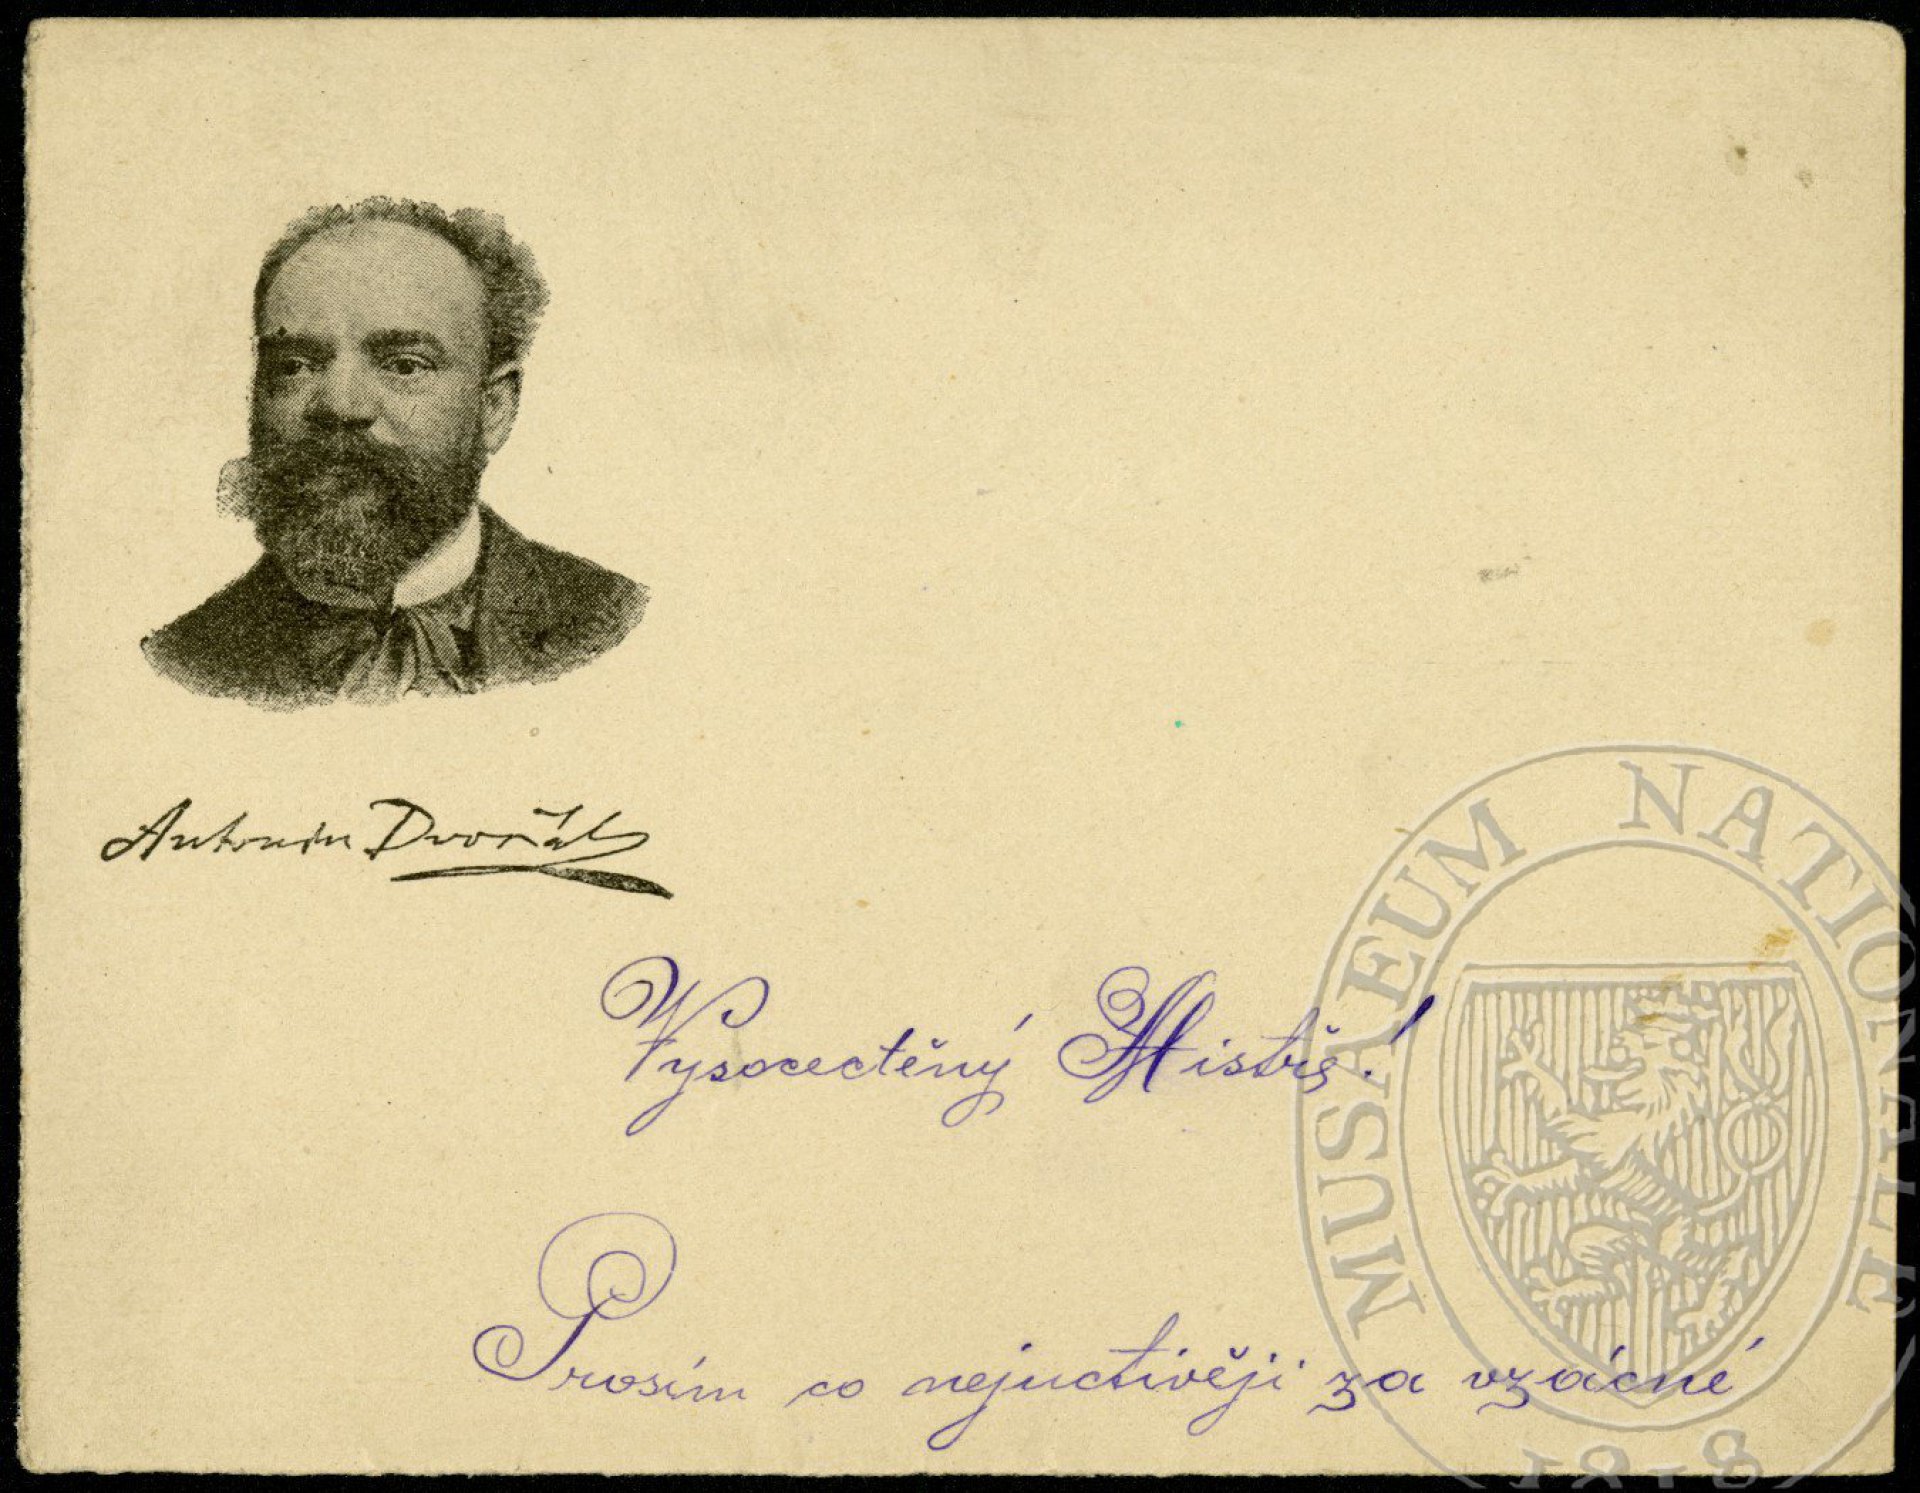 Antonín Dvořák
Vysocectěný Mistře!
Prosím co nejuctivěji za vzácné
MUSAEUM NATIONALE
1818